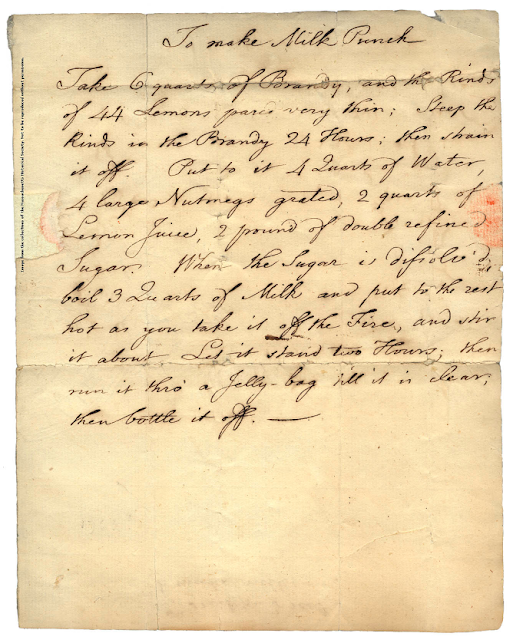 To make Milk Punch
Take 6 quarts of Brandy, and the Rinds
of 44 Lemons pared very thin; Steep the
Rinds in the Brandy 24 Hours; then strain
it off. Put to it 4 Quarts of Water,
4 large Nutmegs grated, 2 quarts of
Lemon Juice, 2 pound of double refined
Sugar. When the Sugar is dissolv'd,
boil 3 Quarts of Milk and put to the rest
hot as you take it off the Fire, and stir
it about. Let it stand two Hours; then
run it thro' a Jelly-bag till it is clear;
then bottle it off. —